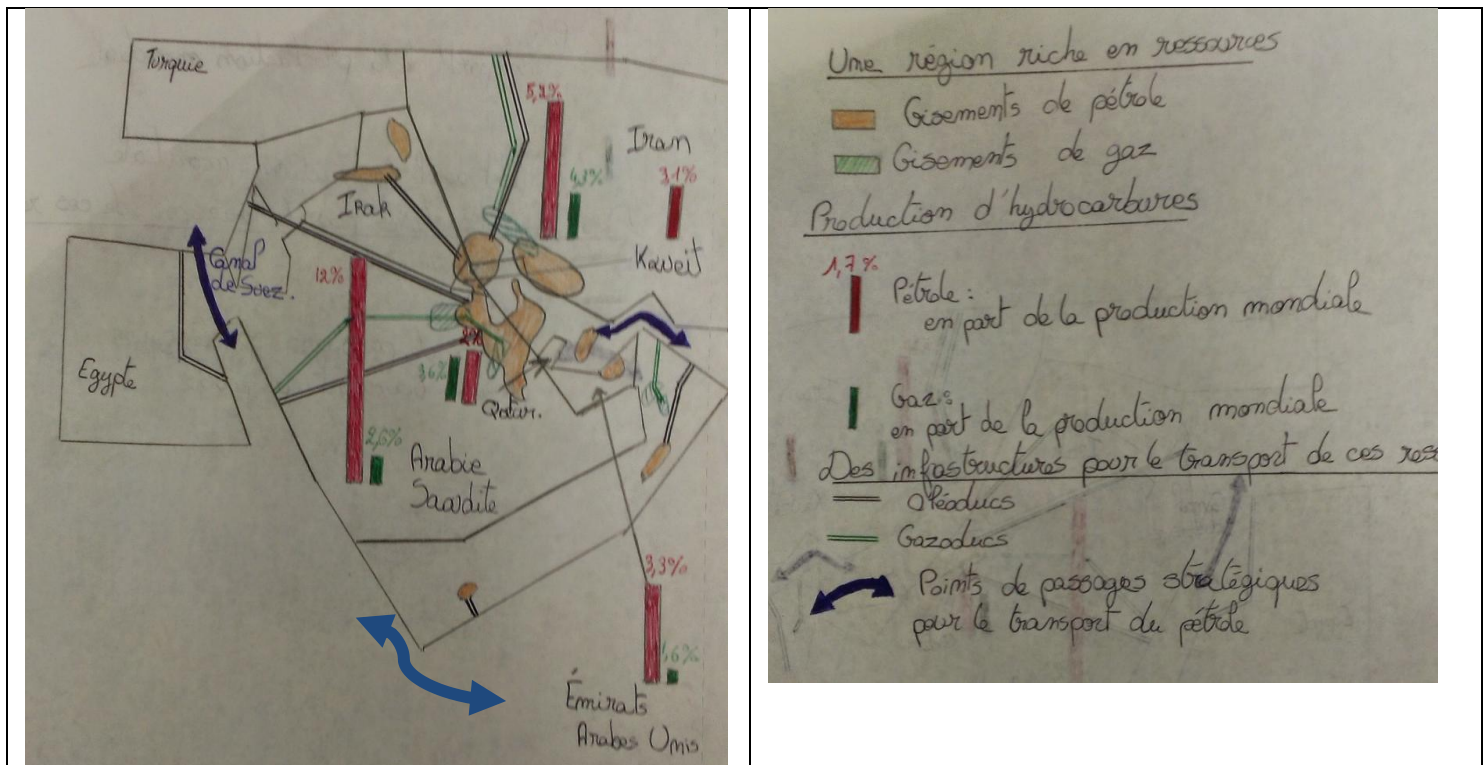 Turquie
5,2%
Iran
4,3%
3,1%
Irak
Koweit
Canal
de Suez.
12%
Egypte
2%
3,6%
Qatar.
2,5%
Arabie
Saoudite
3,3%
1,6%
Émirats
Arabes Unis
Une région riche en ressources
Gisements de pétrole
Gisements de gaz
Production d'hydrocarbures
1,7%
Pétrole :
en part de la production mondiale
Gaz :
en part de la production mondiale
Des infrastructures pour le transport de ces ress
Oléoducs
Gazoducs
Points de passages stratégiques
pour le transport du pétrole